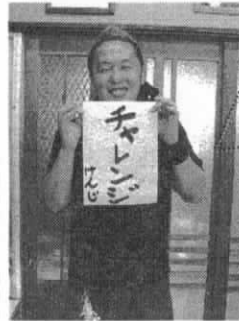 チャレンジ
けんじ